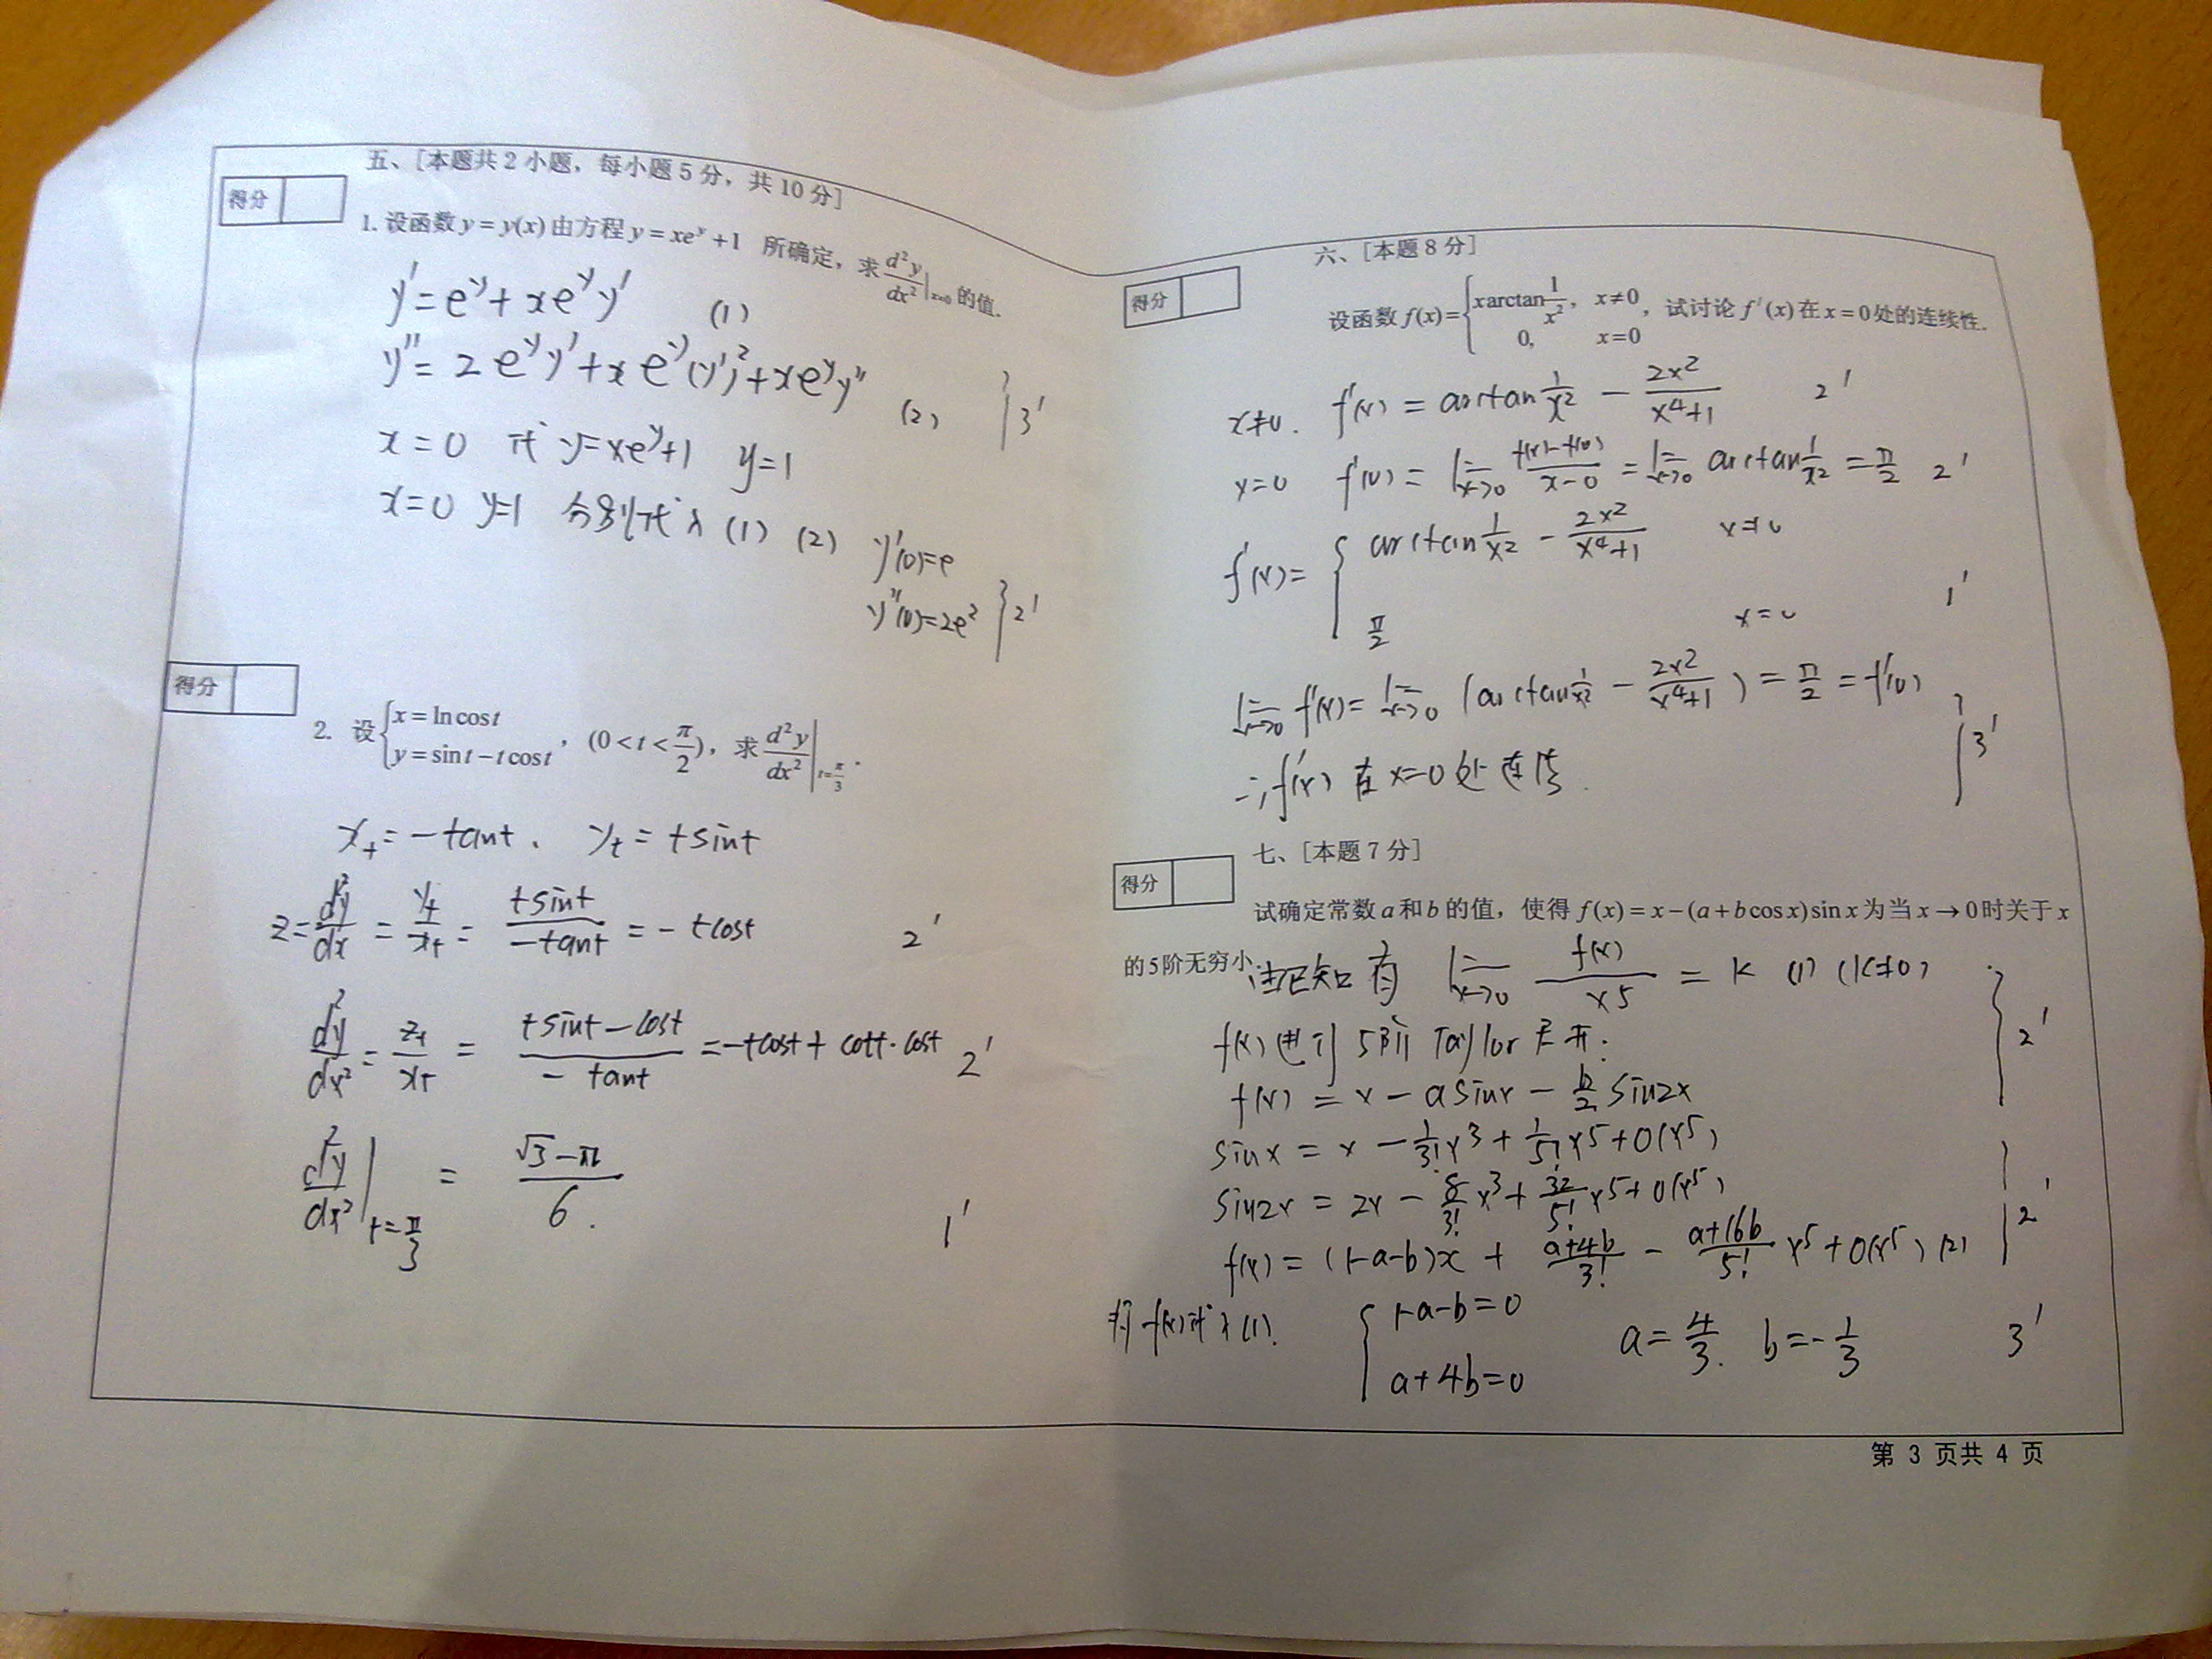 五、[本题共2小题，每小题5分，共10分]
得分
1. 设函数 y = y(x) 由方程 y = xe^y +1 所确定，求 d²y/dx² |x=0 的值.
y' = e^y + xe^y y' (1)
y'' = 2e^y y' + xe^y (y')² + xe^y y'' (2) 3'
x = 0 代 y=xe^y+1 y=1
x=0 y=1 分别代入 (1) (2) y'(0)=e
y''(0)=2e² 2'
得分
2. 设 { x = ln cos t
y = sin t − t cos t ，(0 < t < π/2)，求 d²y/dx² |t=π/3 .
x_t = −tant . y_t = tsint
z = dy/dx = y_t/x_t = tsint/−tant = −tcost 2'
d²y/dx² = z_t/x_t = (tsint − cost)/(− tant) = −tcost + cott·cost 2'
d²y/dx² |t=π/3 = (√3 − π)/6 . 1'
六、[本题8分]
得分
设函数 f(x) = { x arctan 1/x², x≠0
0, x=0 ，试讨论 f '(x) 在 x = 0 处的连续性.
x≠0 . f'(x) = arctan 1/x² − 2x²/(x⁴+1) 2'
x=0 f'(0) = lim x→0 (f(x)−f(0))/(x−0) = lim x→0 arctan 1/x² = π/2 2'
f'(x) = { arctan 1/x² − 2x²/(x⁴+1) x≠0
π/2 x=0 1'
lim x→0 f'(x) = lim x→0 (arctan 1/x² − 2x²/(x⁴+1)) = π/2 = f'(0)
∴ f'(x) 在 x=0 处连续. 3'
七、[本题7分]
得分
试确定常数 a 和 b 的值，使得 f(x) = x−(a+b cos x) sin x 为当 x → 0 时关于 x
的5阶无穷小.
由已知有 lim x→0 f(x)/x5 = k (1) (k≠0)
f(x) 进行 5阶 Taylor 展开: 2'
f(x) = x − a sinx − b/2 sin2x
sinx = x − 1/3! x3 + 1/5! x5 + o(x5)
sin2x = 2x − 8/3! x3 + 32/5! x5 + o(x5)
f(x) = (1−a−b)x + (a+4b)/3! − (a+16b)/5! x5 + o(x5) (2) 2'
将 f(x) 代入(1). { 1−a−b=0
a+4b=0 a = 4/3. b = −1/3 3'
第 3 页共 4 页